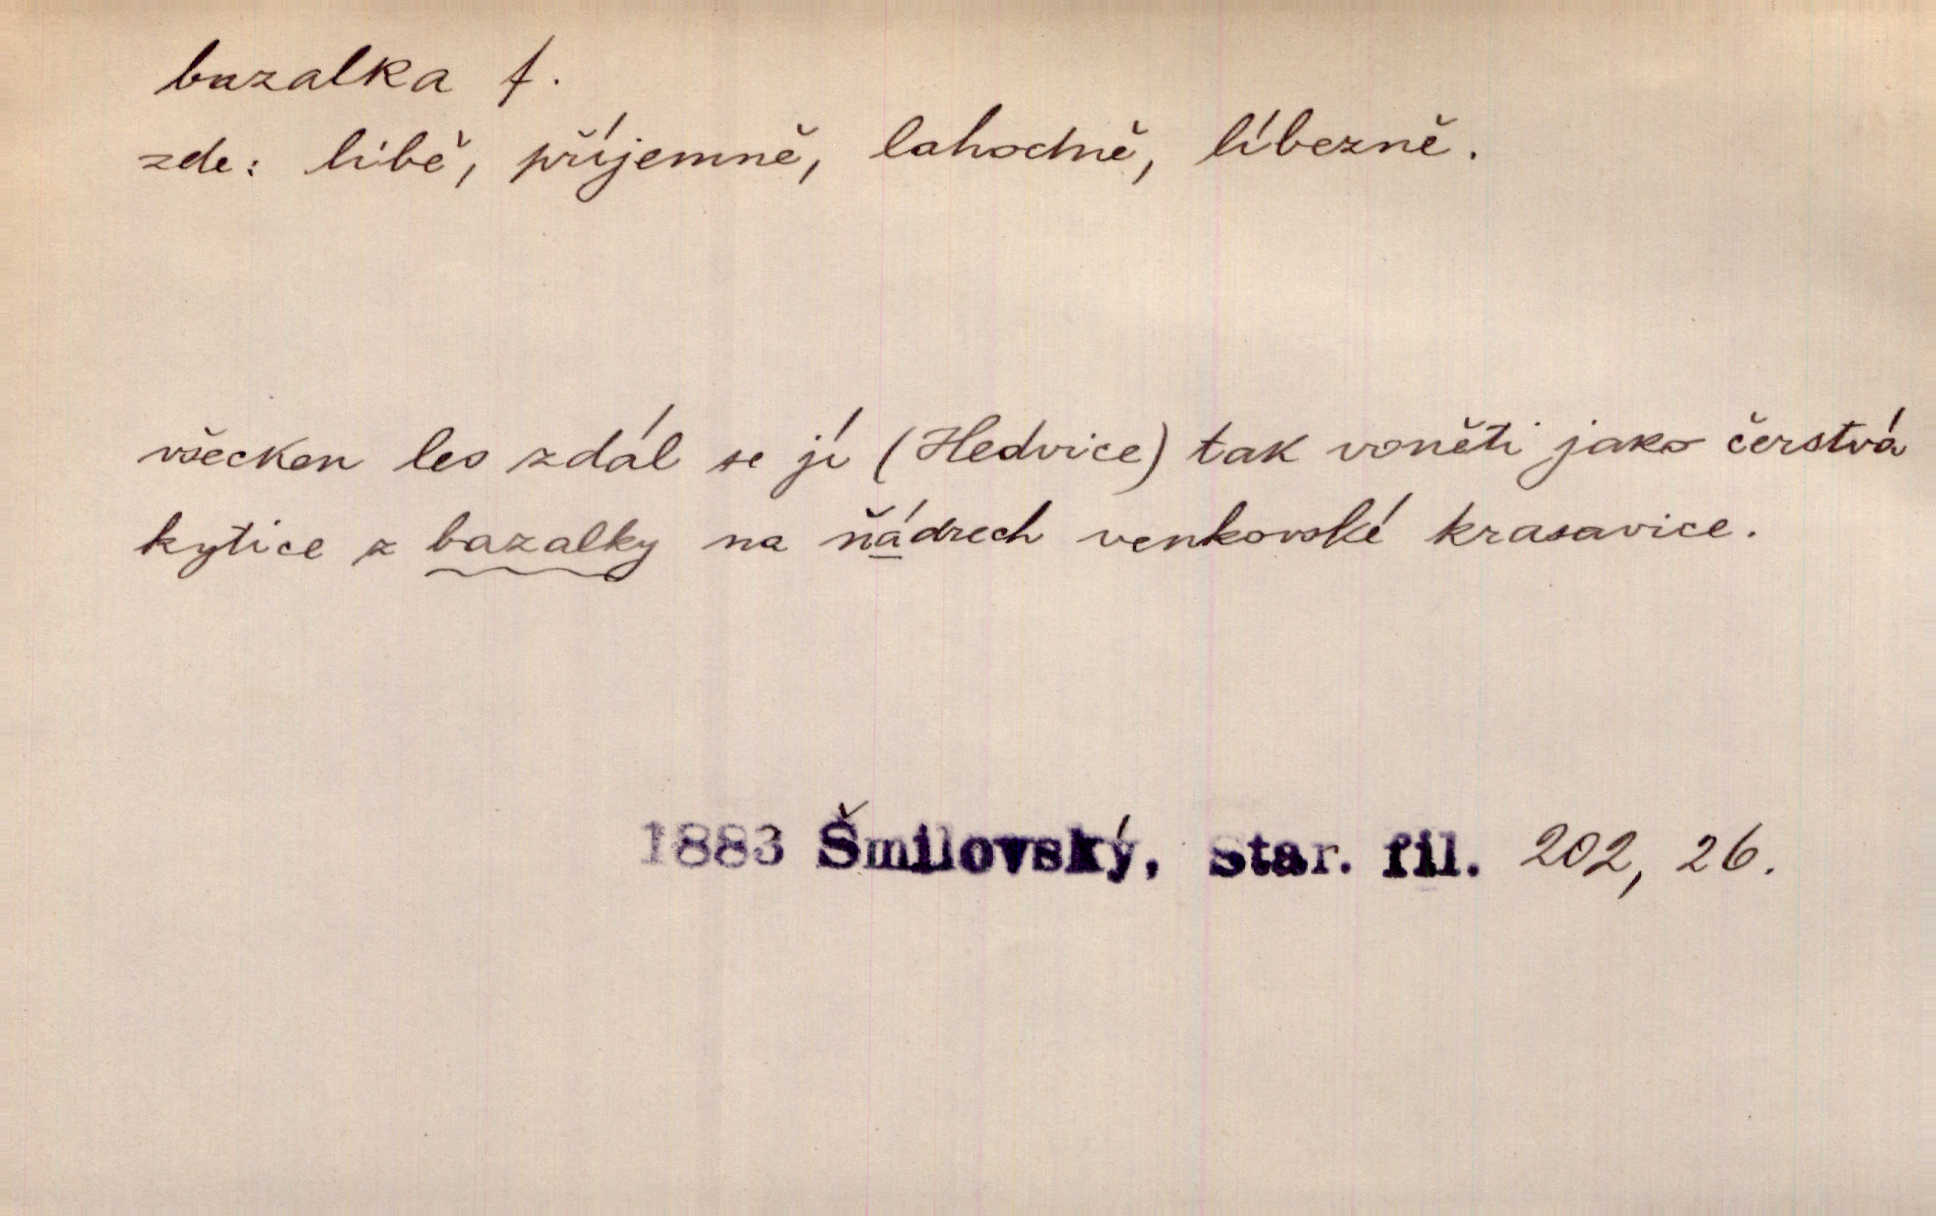 bazalka f.
zde: libě, příjemně, lahodně, líbezně.
všecken les zdál se jí (Hedvice) tak voněti jako čerstvá
kytice z bazalky na ňádrech venkovské krasavice.
1883 Šmilovský, Star. fil. 202, 26.